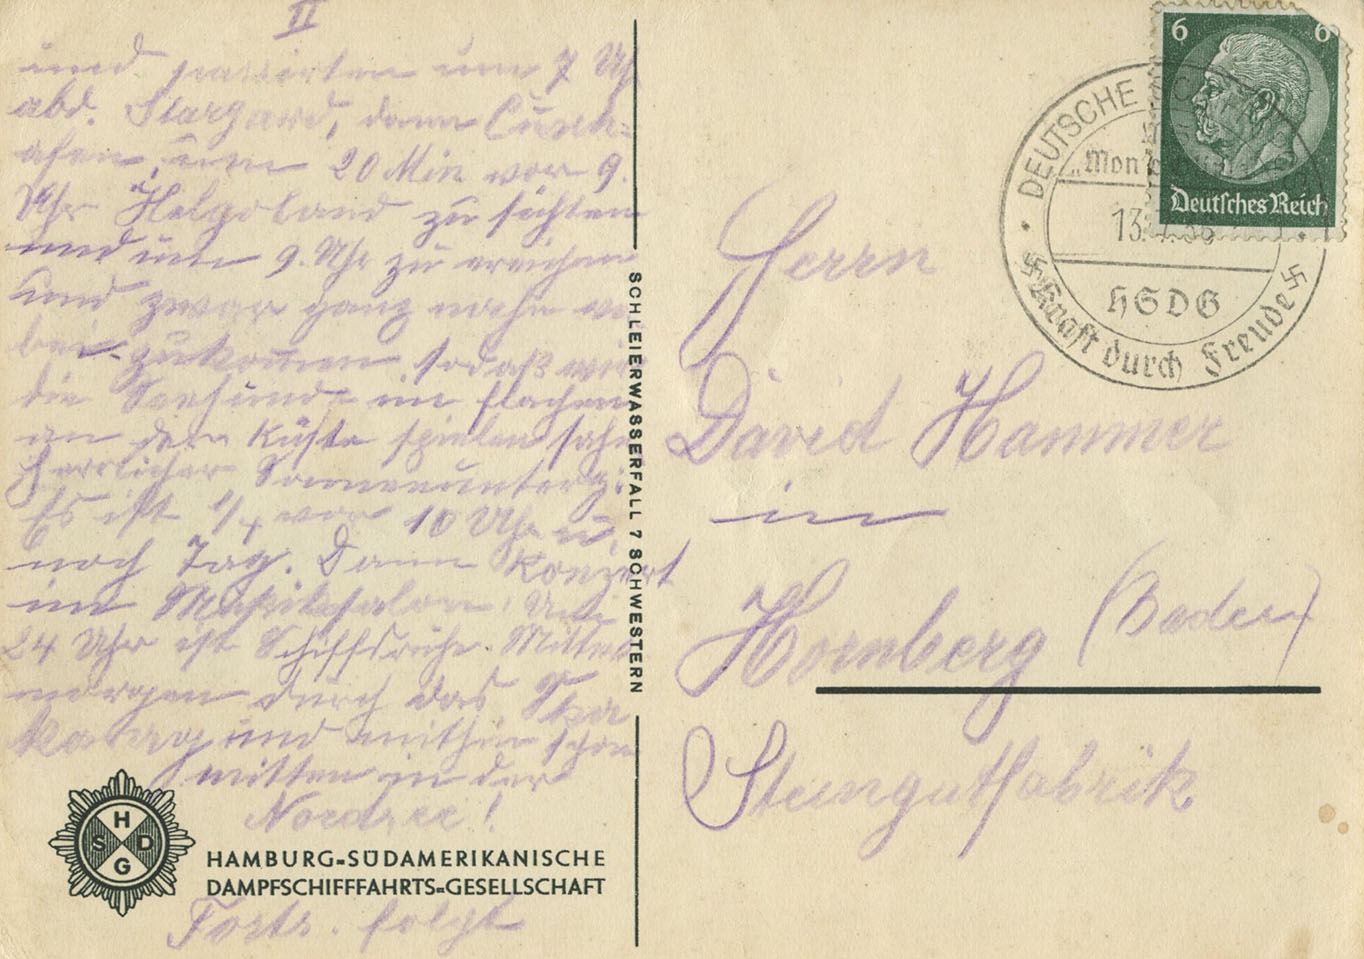 II
und passierten um 7 Uhr
abd. Stargard, dann Cuxh-
afen, um 20 Min vor 9.
Uhr Helgoland zu sichten
und um 9. Uhr zu erreichen
und zwar ganz nahe vor
bei zukommen, sodaß wir
die Seehunde im flachen
an der Küste spielen sahn
herrlicher Sonnenunterg.
Es ist 1/4 vor 10 Uhr u.
noch Tag. Dann Konzert
im Musiksalon. Um
24 Uhr ist Schiffsruhe.
morgen durch das Ska
und mithin schon
mitten in der
Nordsee!
HSDG
HAMBURG-SÜDAMERIKANISCHE
DAMPFSCHIFFFAHRTS-GESELLSCHAFT
Forts. folgt
SCHLEIERWASSERFALL 7 SCHWESTERN
6 6
Deutsches Reich
DEUTSCHE
„Mon
13.
HSDG
Kraft durch Freude
Herrn
David Hammer
in
Hornberg (Baden)
Steingutfabrik